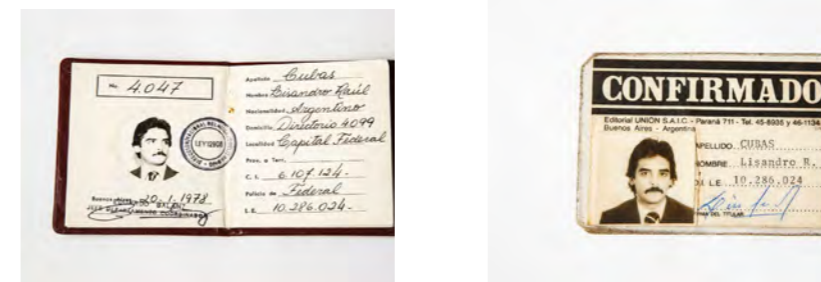 No. 4.047
LEY 12908
20-1-1978
Apellido Cubas
Nombre Lisandro Raúl
Nacionalidad Argentino
Domicilio Directorio 4099
Localidad Capital Federal
Prov. o Terr.
C. I. 6.107.124.-
Policía de Federal
L. E. 10.286.024.-
CONFIRMADO
Editorial UNION S.A.I.C. - Paraná 711 - Tel. 45-8935 y 46-1134
Buenos Aires - Argentina
APELLIDO CUBAS
NOMBRE Lisandro R.
L E 10.286.024
FIRMA DEL TITULAR